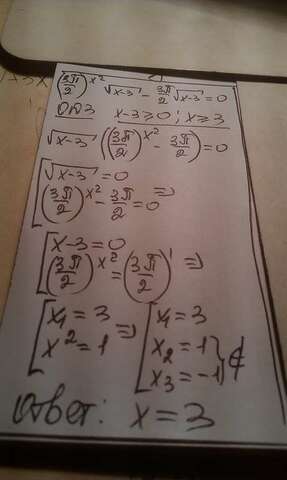 (3π/2)^x² √x-3 - 3π/2 √x-3 = 0
ОДЗ x-3≥0; x≥3
√x-3 ((3π/2)^x² - 3π/2) = 0
[ √x-3 = 0
(3π/2)^x² - 3π/2 = 0 ⇒
[ x-3=0
(3π/2)^x² = (3π/2)^1 ⇒
[ x₁=3 ⇒ [ x₁=3
x²=1 x₂=1
x₃=-1 } ∉
Ответ: x=3